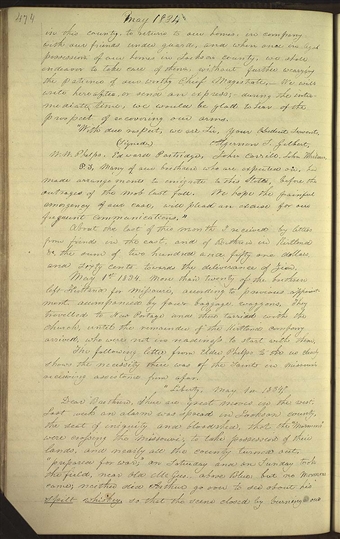 474
May 1834
in this county, to return to our homes, in company
with our friends under guard, and when once in legal
possession of our homes in Jackson county, we shall
endeavor to take care of them, without further wearying
the patience of our worthy Chief Magistrate. We will
write hereafter, or send an express; during the inter-
mediate time, we would be glad to hear of the
prospect of recovering our arms.
With due respect, we are Sir, your Obedient Servants,
(Signed) Algernon S. Gilbert,
W. W. Phelps, Edward Partridge, John Corrill, John Whitmer.
P.S. Many of our brethren who are expected on, had
made arrangements to emigrate to this State, before the
outrages of the mob last fall. We hope the painful
emergency of our case, will plead an excuse for our
frequent communications."
About the last of this month I received by letter
from friends in the east, and of brethren in Kirtland
&c, the sum of two hundred and fifty one dollars
and sixty cents towards the deliverance of Zion,
May 1st 1834. More than twenty of the brethren
left Kirtland for Missouri, according to previous appoint-
ment, accompanied by four baggage waggons. They
travelled to New Portage and there tarried with the
church, until the remainder of the Kirtland company
arrived, who were not in readiness to start with them.
The following letter from elder Phelps to the us that
shows the necessity there was of the Saints in Missouri
receiving assistance from afar.
"Liberty, May 1st 1834.
Dear Brethren, there are great moves in the west.
Last week an alarm was spread in Jackson county,
the seat of iniquity and bloodshed, that the "Mormons"
were crossing the Missouri, to take possession of their
lands, and nearly all the county turned out
"prepared for war;" on Saturday and on Sunday took
the field, near old McGee's above Blue, but no Mormons
came; neither did Arthur go over to see about his
spilt whiskey, so that the scene closed by burning